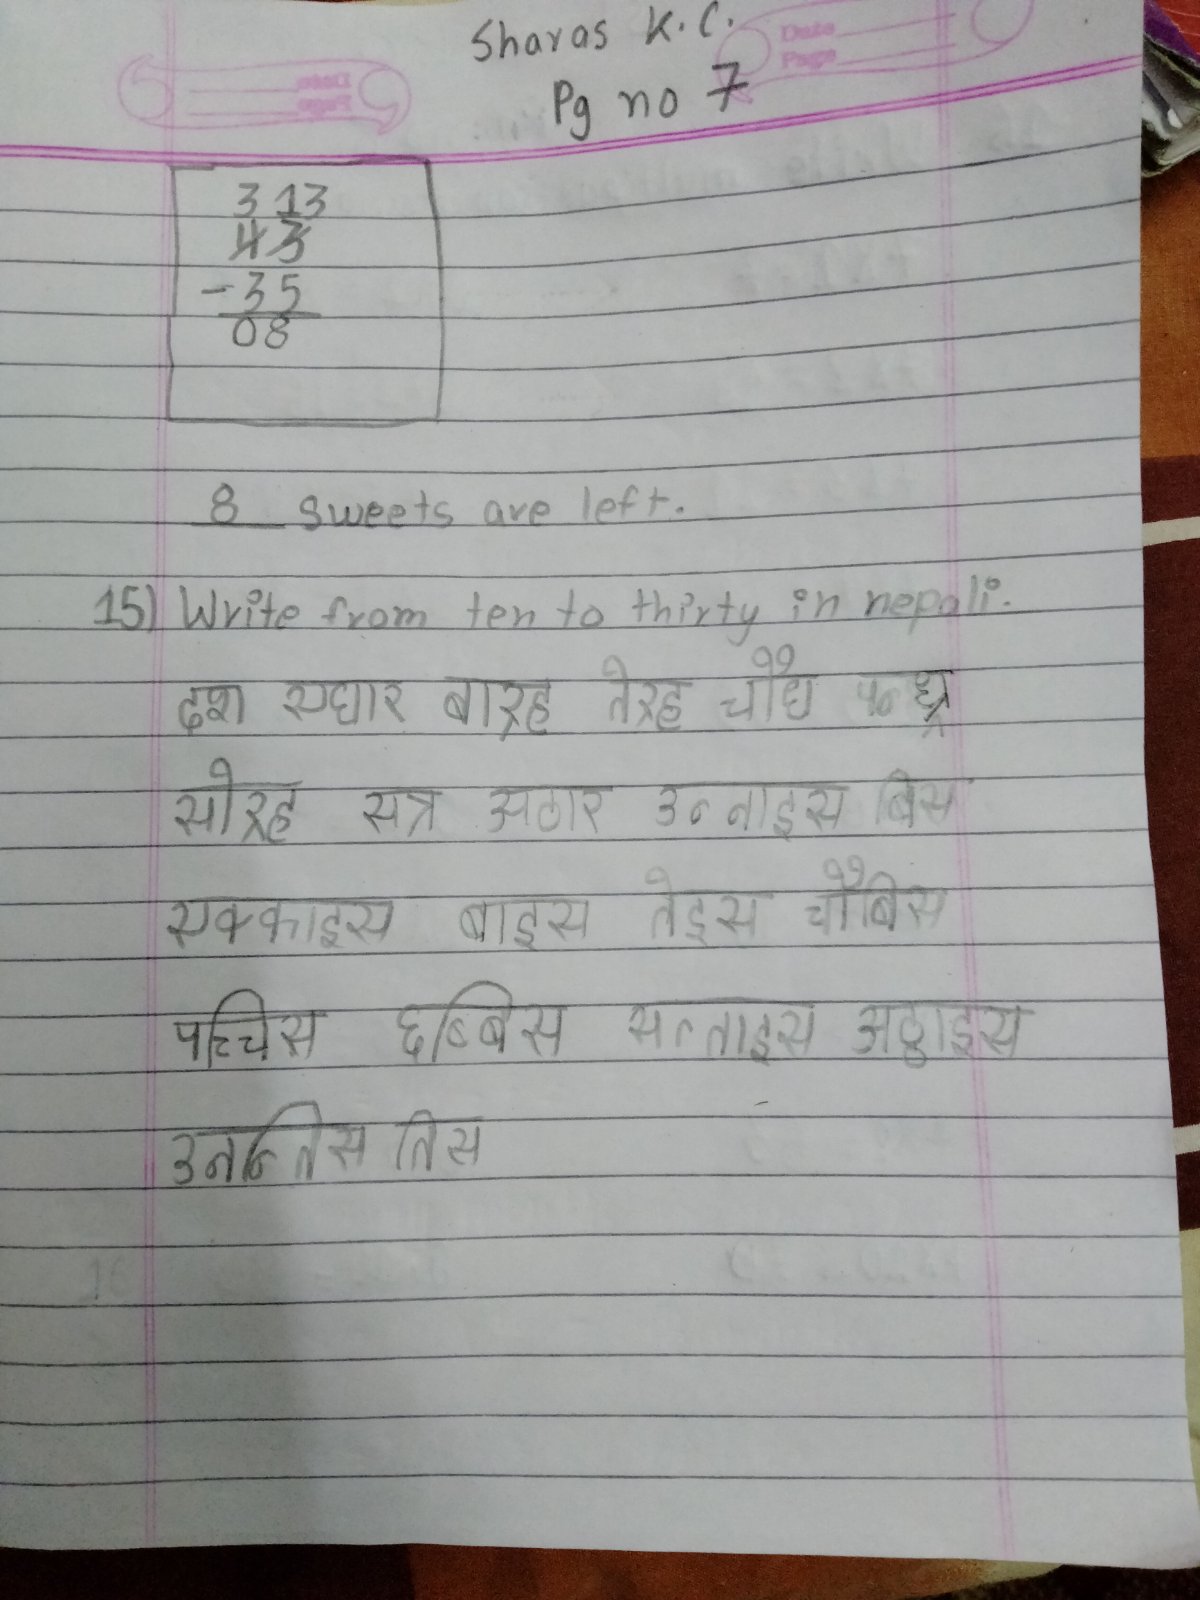 Sharas K.C.
Date
Page
Pg no 7
3 13
43
-35
08
8 sweets are left.
15) Write from ten to thirty in nepali.
दश एघार बाह्र तेह्र चौध पन्ध्र
सोह्र सत्र अठार उन्नाइस बिस
एक्काइस बाइस तेइस चौबिस
पच्चिस छब्बिस सत्ताइस अठ्ठाइस
उनन्तिस तिस